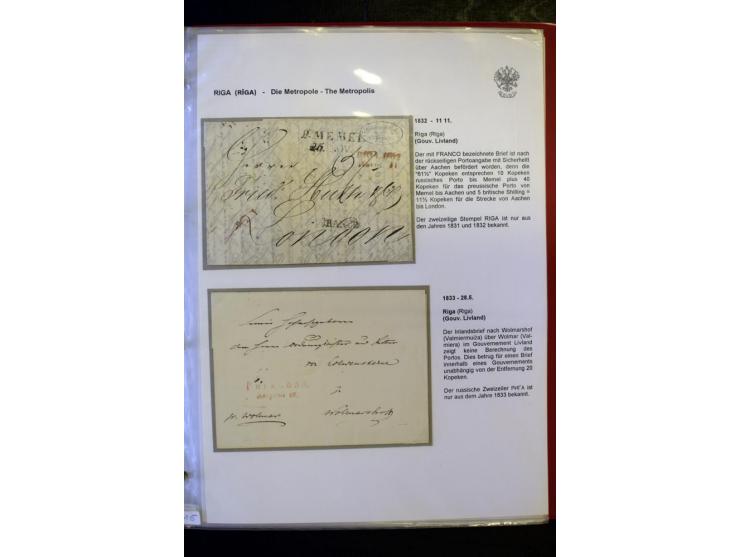 RIGA (RĪGA) - Die Metropole - The Metropolis
1832 - 11 11.
Riga (Rīga)
(Gouv. Livland)
Der mit FRANCO bezeichnete Brief ist nach
der rückseitigen Portoangabe mit Sicherheit
über Aachen befördert worden, denn die
"61½" Kopeken entsprechen 10 Kopeken
russisches Porto bis Memel plus 40
Kopeken für das preussische Porto von
Memel bis Aachen und 5 britische Shilling =
11½ Kopeken für die Strecke von Aachen
bis London.
Der zweizeilige Stempel RIGA ist nur aus
den Jahren 1831 und 1832 bekannt.
MEMEL
London
1833 - 28.6.
Riga (Rīga)
(Gouv. Livland)
Der Inlandsbrief nach Wolmarshof
(Valmiermuiza) über Wolmar (Val-
miera) im Gouvernement Livland
zeigt keine Berechnung des
Portos. Dies betrug für einen Brief
innerhalb eines Gouvernements
unabhängig von der Entfernung 20
Kopeken.
Der russische Zweizeiler РИГА ist
nur aus dem Jahre 1833 bekannt.
p. Wolmar
Wolmarshoff